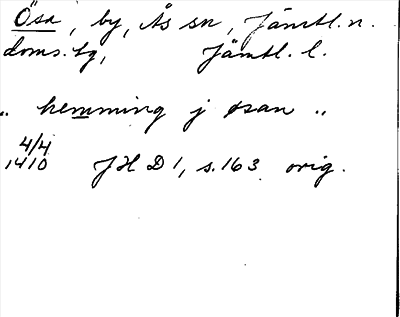 Ösa, by, Ås sn, Jämtl. n.
doms. tg, Jämtl. l.
„ hemming j øsan „
4/4
1410 JHD 1, s. 163 orig.